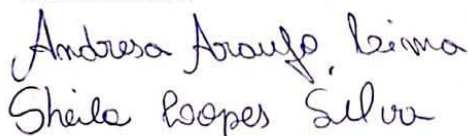 Andresa Araujo Lima
Sheila Lopes Silva